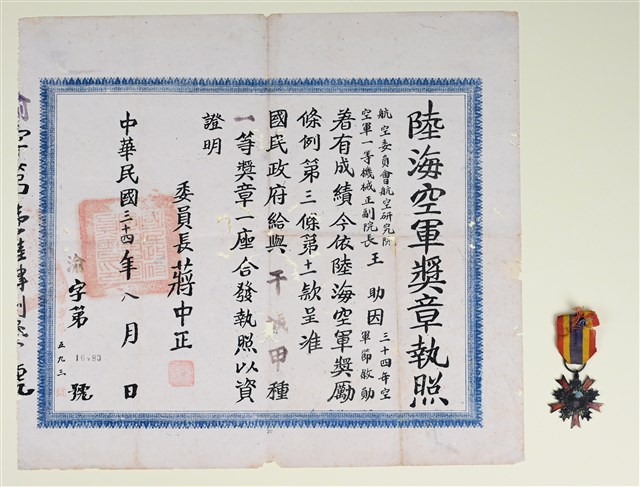 陸海空軍獎章執照
航空委員會航空研究院
空軍一等機械正副院長王助因三十四年空
軍節敘勳
著有成績今依陸海空軍獎勵
條例第三條第十一款呈准
國民政府給與干城甲種
一等獎章一座合發執照以資
證明
委員長蔣中正
中華民國三十四年八月 日
渝字第16483號
五九三